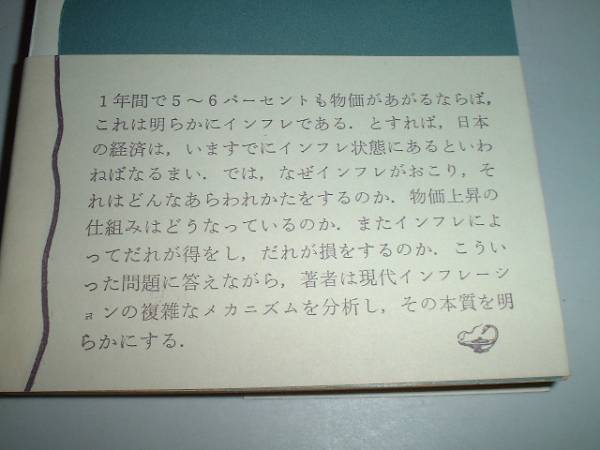 1年間で5〜6パーセントも物価があがるならば,
これは明らかにインフレである. とすれば, 日本
の経済は, いますでにインフレ状態にあるといわ
ねばなるまい. では, なぜインフレがおこり, そ
れはどんなあらわれかたをするのか. 物価上昇の
仕組みはどうなっているのか. またインフレによ
ってだれが得をし, だれが損をするのか. こうい
った問題に答えながら, 著者は現代インフレーシ
ョンの複雑なメカニズムを分析し, その本質を明
らかにする.